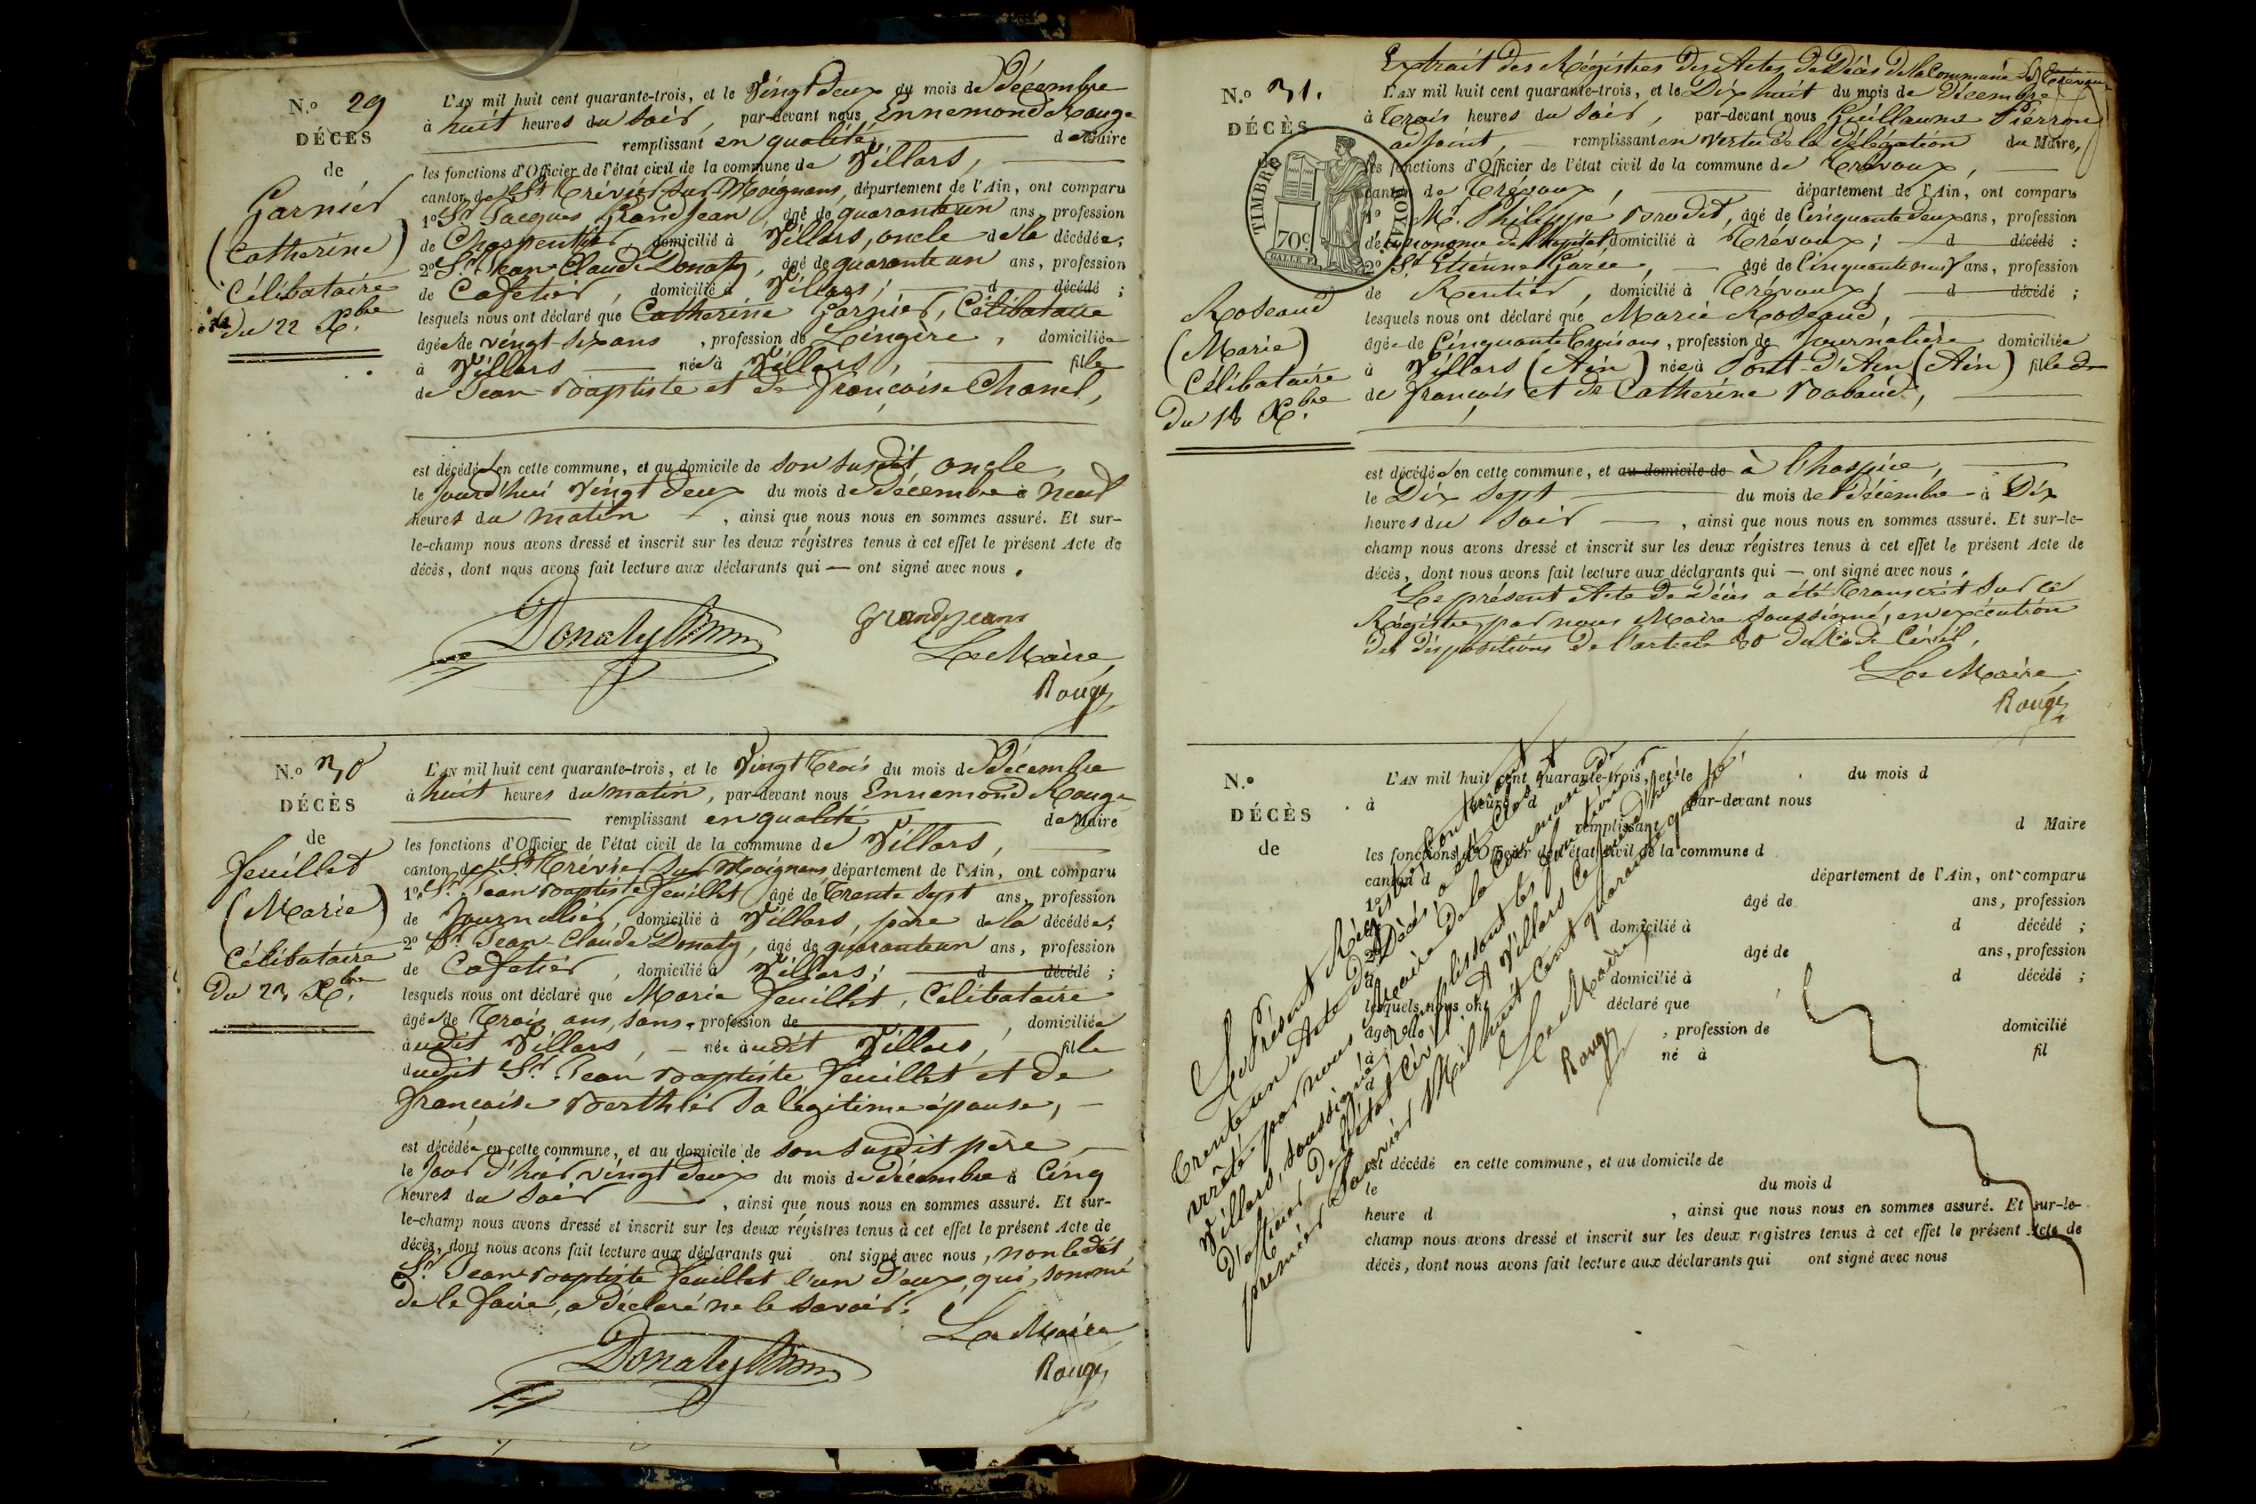 N.º 29
DÉCÈS
de
Garnier
(Catherine)
Célibataire
du 22 Xbre.
L'AN mil huit cent quarante-trois, et le Vingt deux du mois de Décembre
à huit heures du soir, par-devant nous Ennemond Rouge
remplissant en qualité de Maire
les fonctions d'Officier de l'état civil de la commune de Villars,
canton de St. Trivier sur Moignans, département de l'Ain, ont comparu
1º Sr. Jacques Grandjean, âgé de quarante un ans, profession
de Charpentier, domicilié à Villars, oncle de la décédée;
2º Sr. Jean Claude Donaty, âgé de quarante un ans, profession
de Cafetier, domicilié à Villars; d décédé ;
lesquels nous ont déclaré que Catherine Garnier, Célibataire
âgée de vingt six ans, profession de Lingère, domiciliée
à Villars née à Villars, fille
de Jean-Baptiste et de Françoise Chanel,
est décédée en cette commune, et au domicile de son susdit oncle,
le jourd'hui vingt deux du mois de Décembre à neuf
heures du matin, ainsi que nous nous en sommes assuré. Et sur-
le-champ nous avons dressé et inscrit sur les deux régistres tenus à cet effet le présent Acte de
décès, dont nous avons fait lecture aux déclarants qui — ont signé avec nous.
Donaty
Grandjean
Le Maire,
Rouge
N.º 30
DÉCÈS
de
Feuillet
(Marie)
Célibataire
Du 23 Xbre.
L'AN mil huit cent quarante-trois, et le Vingt Trois du mois de Décembre
à huit heures du matin, par-devant nous Ennemond Rouge
remplissant en qualité de Maire
les fonctions d'Officier de l'état civil de la commune de Villars,
canton de St. Trivier sur Moignans, département de l'Ain, ont comparu
1º Sr. Jean Baptiste Feuillet, âgé de Trente sept ans, profession
de Journalier, domicilié à Villars, père de la décédée;
2º Sr. Jean-Claude Donaty, âgé de quarante un ans, profession
de Cafetier, domicilié à Villars; d décédé ;
lesquels nous ont déclaré que Marie Feuillet, Célibataire
âgée de Trois ans, sans profession de, domiciliée
audit Villars, née audit Villars, fille
dudit Sr. Jean Baptiste Feuillet et de
Françoise Berthier sa légitime épouse,
est décédée en cette commune, et au domicile de son susdit père
le jour d'hier vingt deux du mois de Décembre à Cinq
heures du soir, ainsi que nous nous en sommes assuré. Et sur-
le-champ nous avons dressé et inscrit sur les deux régistres tenus à cet effet le présent Acte de
décès, dont nous avons fait lecture aux déclarants qui ont signé avec nous, non ledit
Sr. Jean Baptiste Feuillet l'un d'eux, qui, sommé
de le faire, a déclaré ne le savoir.
Le Maire
Donaty
Rouge
Extrait des Régistres des Actes de Décès de la Commune de Trévoux
N.º 31.
DÉCÈS
de
TIMBRE ROYAL
70c
Roseaud
(Marie)
Célibataire
Du 18 Xbre.
L'AN mil huit cent quarante-trois, et le Dix huit du mois de Décembre
à Trois heures du soir, par-devant nous Guillaume Pierron
adjoint, remplissant en vertu de la délégation du Maire,
les fonctions d'Officier de l'état civil de la commune de Trévoux,
canton de Trévoux, département de l'Ain, ont comparu
1º Mr. Philippe Brodet, âgé de Cinquante deux ans, profession
d'économe de l'hôpital, domicilié à Trévoux; d décédé ;
2º Sr. Etienne Garée, âgé de Cinquante neuf ans, profession
de Rentier, domicilié à Trévoux; d décédé ;
lesquels nous ont déclaré que Marie Roseaud,
âgée de Cinquante trois ans, profession de Journalière domiciliée
à Villars (Ain) née à Pont-d'Ain (Ain) fille de
de François et de Catherine Babaud,
est décédée en cette commune, et au domicile de à l'hospice,
le Dix sept du mois de Décembre à Dix
heures du soir, ainsi que nous nous en sommes assuré. Et sur-le-
champ nous avons dressé et inscrit sur les deux régistres tenus à cet effet le présent Acte de
décès, dont nous avons fait lecture aux déclarants qui — ont signé avec nous.
Le présent Acte de Décès a été transcrit sur ce
Régistre par nous Maire soussigné, en exécution
des dispositions de l'article 80 du Code Civil.
Le Maire
Rouge
N.º
DÉCÈS
de
L'AN mil huit cent quarante-trois, et le du mois d
à heure d par-devant nous
remplissant d Maire
les fonctions d'Officier de l'état civil de la commune d
canton d département de l'Ain, ont comparu
1º âgé de ans, profession
d domicilié à d décédé ;
2º âgé de ans, profession
d domicilié à d décédé ;
lesquels nous ont déclaré que
âgé de, profession de domicilié
à né à fil
d
est décédé en cette commune, et au domicile de
le du mois d à
heure d, ainsi que nous nous en sommes assuré. Et sur-le-
champ nous avons dressé et inscrit sur les deux registres tenus à cet effet le présent Acte de
décès, dont nous avons fait lecture aux déclarants qui ont signé avec nous
Le Présent Régistre, contenant
Trente un Acte de Décès, a été clos et
arrêté par nous Maire de la Commune de
Villars, soussigné, remplissant les fonctions
d'officier de l'état Civil. A Villars ce jourd'hui
premier Janvier Mil huit Cent quarante quatre.
Le Maire,
Rouge